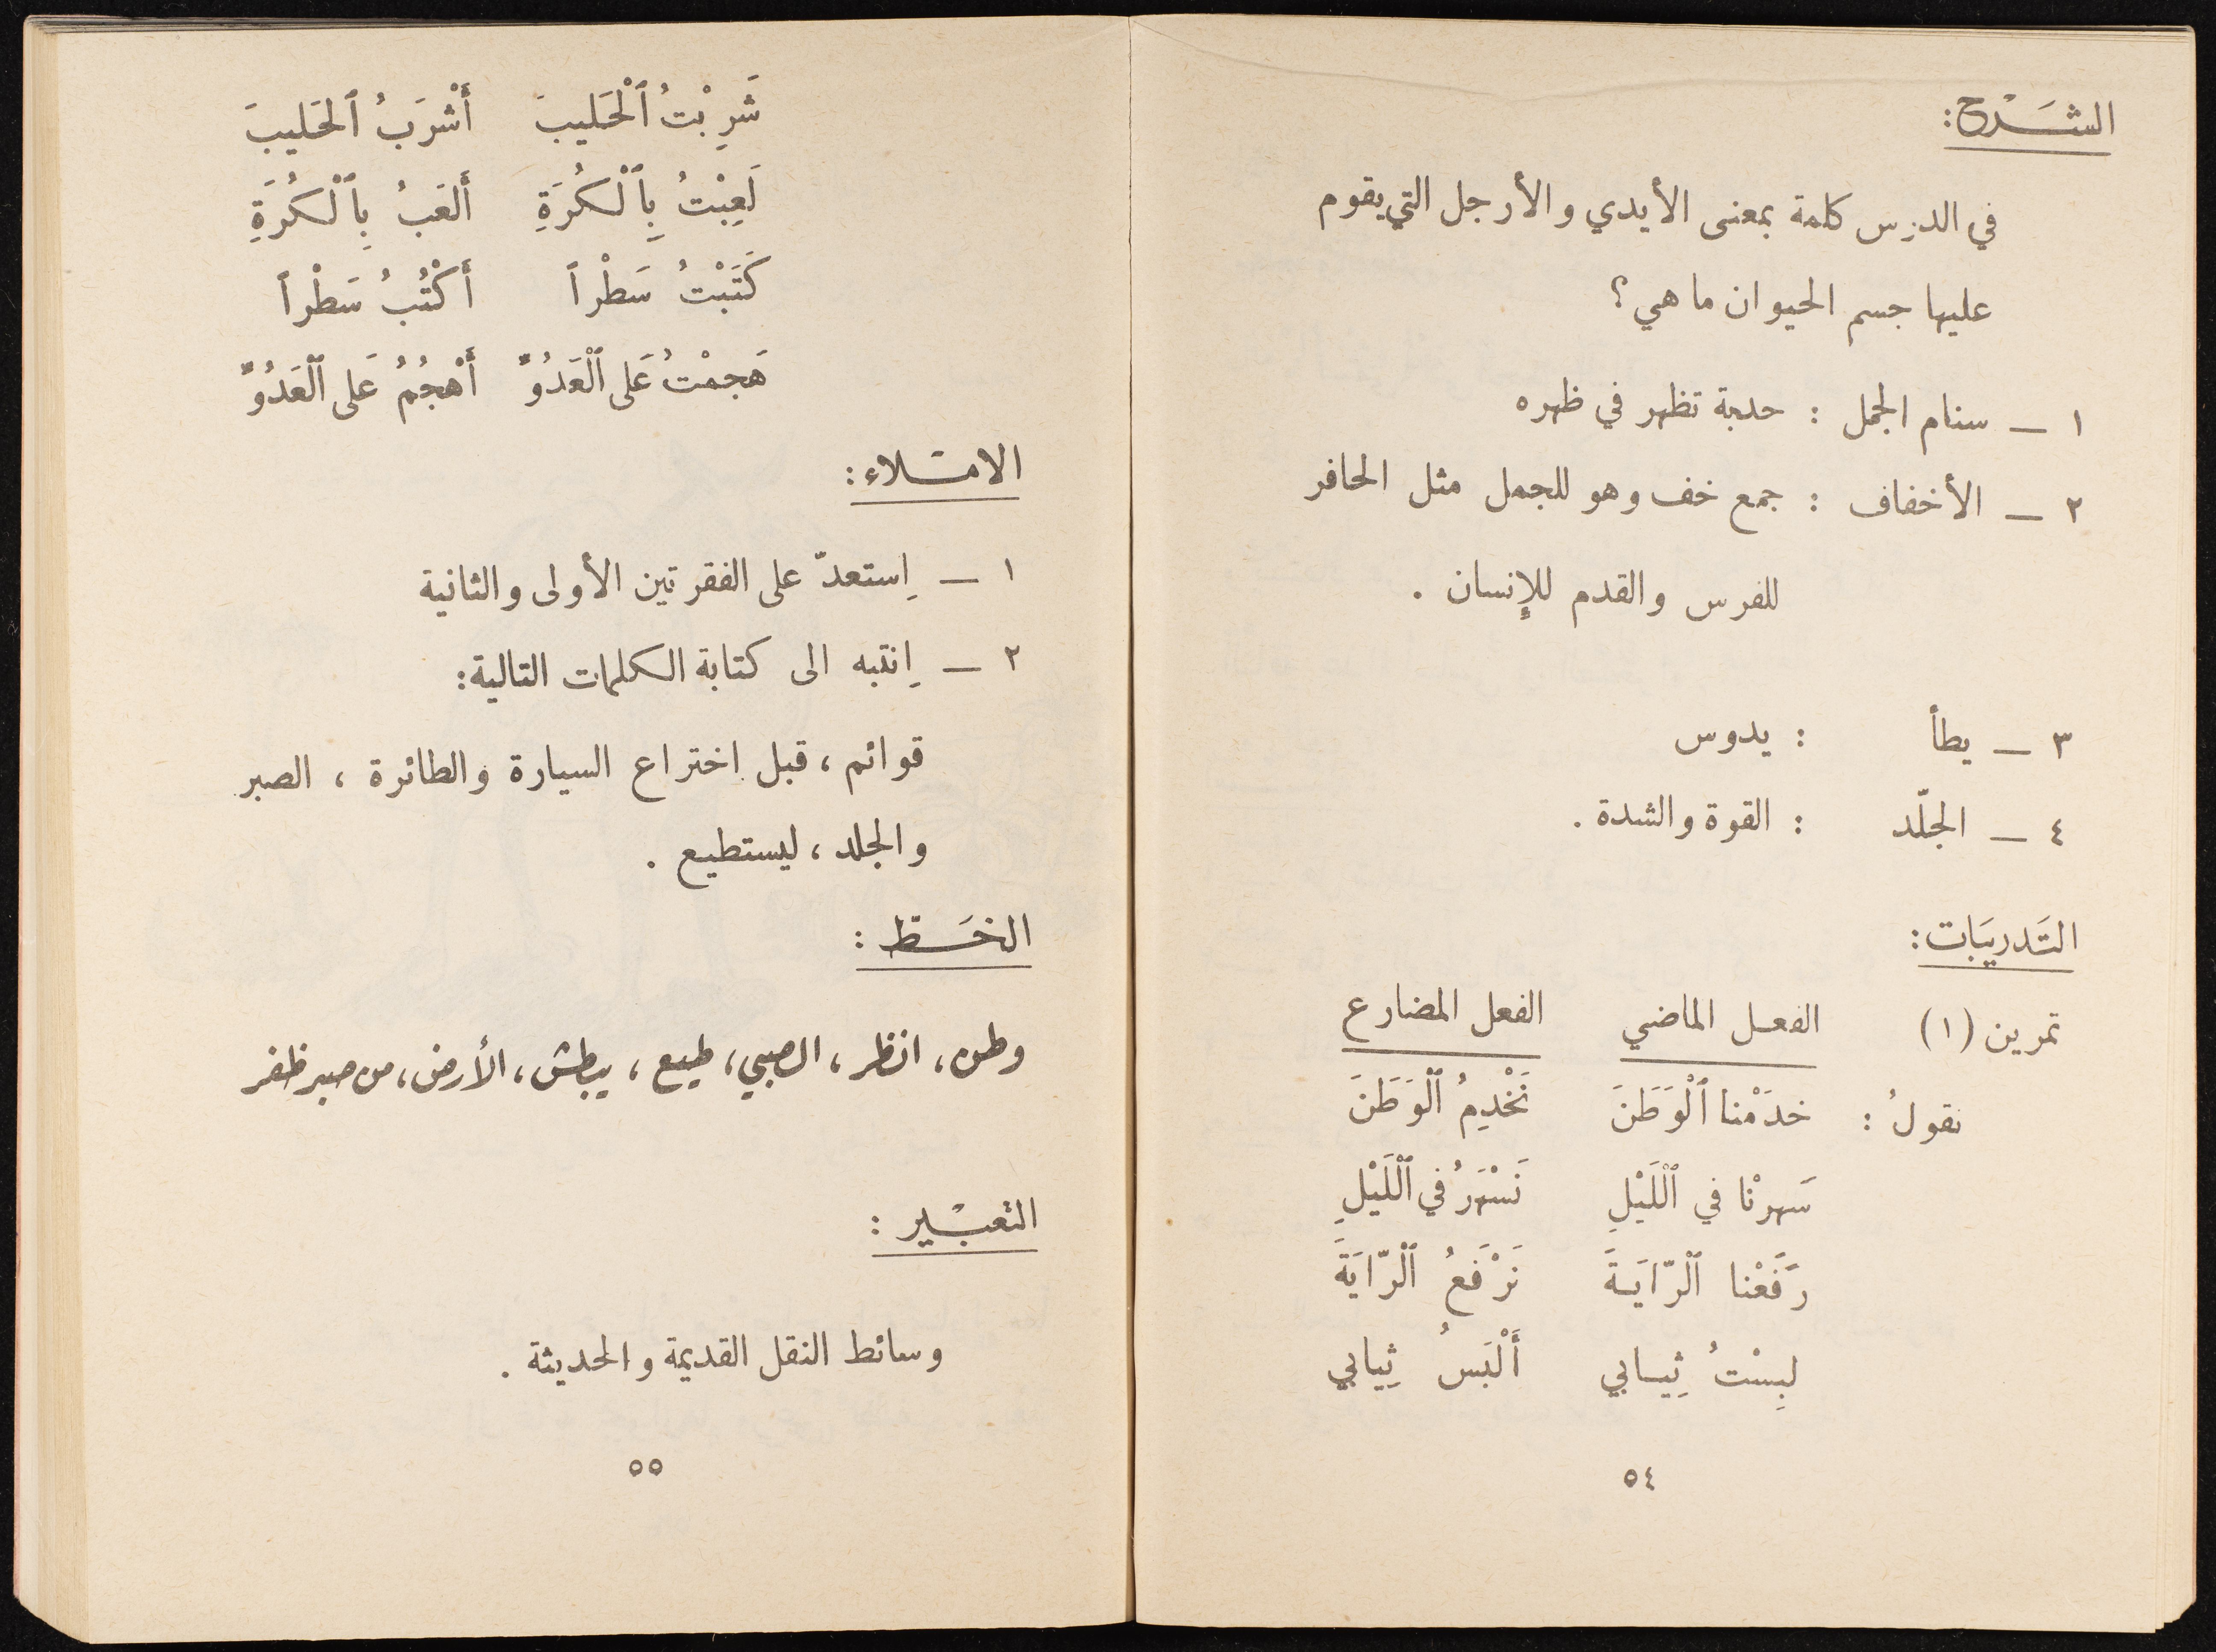 الشَّرح:
في الدرس كلمة بمعنى الأيدي والأرجل التي يقوم
عليها جسم الحيوان ما هي؟
١ — سنام الجمل : حدبة تظهر في ظهره
٢ — الأخفاف : جمع خف وهو للجمل مثل الحافر
للفرس والقدم للإنسان .
٣ — يطأ : يدوس
٤ — الجلّد : القوة والشدة .
التَدريبَات:
تمرين (١) الفعل الماضي الفعل المضارع
نقولُ : خدَمْنا ٱلْوَطَنَ نَخْدِمُ ٱلْوَطَنَ
سَهرْنا في ٱللَّيْلِ نَسْهَرُ في ٱللَّيْلِ
رَفَعْنا ٱلرّايَةَ نَرْفَعُ ٱلرّايَةَ
لبِسْتُ ثِيابي أَلْبَسُ ثِيابي
٥٤
شَرِبْتُ ٱلْحَليبَ أَشْرَبُ ٱلحَليبَ
لَعِبْتُ بِٱلْكُرَةِ أَلعَبُ بِٱلْكُرَةِ
كَتَبْتُ سَطْراً أَكْتُبُ سَطْراً
هَجمْتُ عَلى ٱلْعَدُوِّ أَهْجُمُ عَلى ٱلْعَدُوِّ
الامْلاء:
١ — اِستعدّ على الفقرتين الأولى والثانية
٢ — اِنتبه الى كتابة الكلمات التالية:
قوائم ، قبل اختراع السيارة والطائرة ، الصبر
والجلد ، ليستطيع .
الخَط :
وطن ، انظر ، الصبي ، طيع ، يبطش ، الأرض ، من صبر ظفر
التعبْير :
وسائط النقل القديمة والحديثة .
٥٥